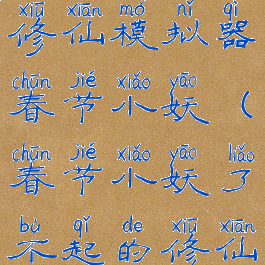 xiū xiān mó nǐ qì
修仙模拟器
chūn jié xiǎo yāo
春节小妖（
chūn jié xiǎo yāo liǎo
春节小妖了
bù qǐ de xiū xiān
不起的修仙